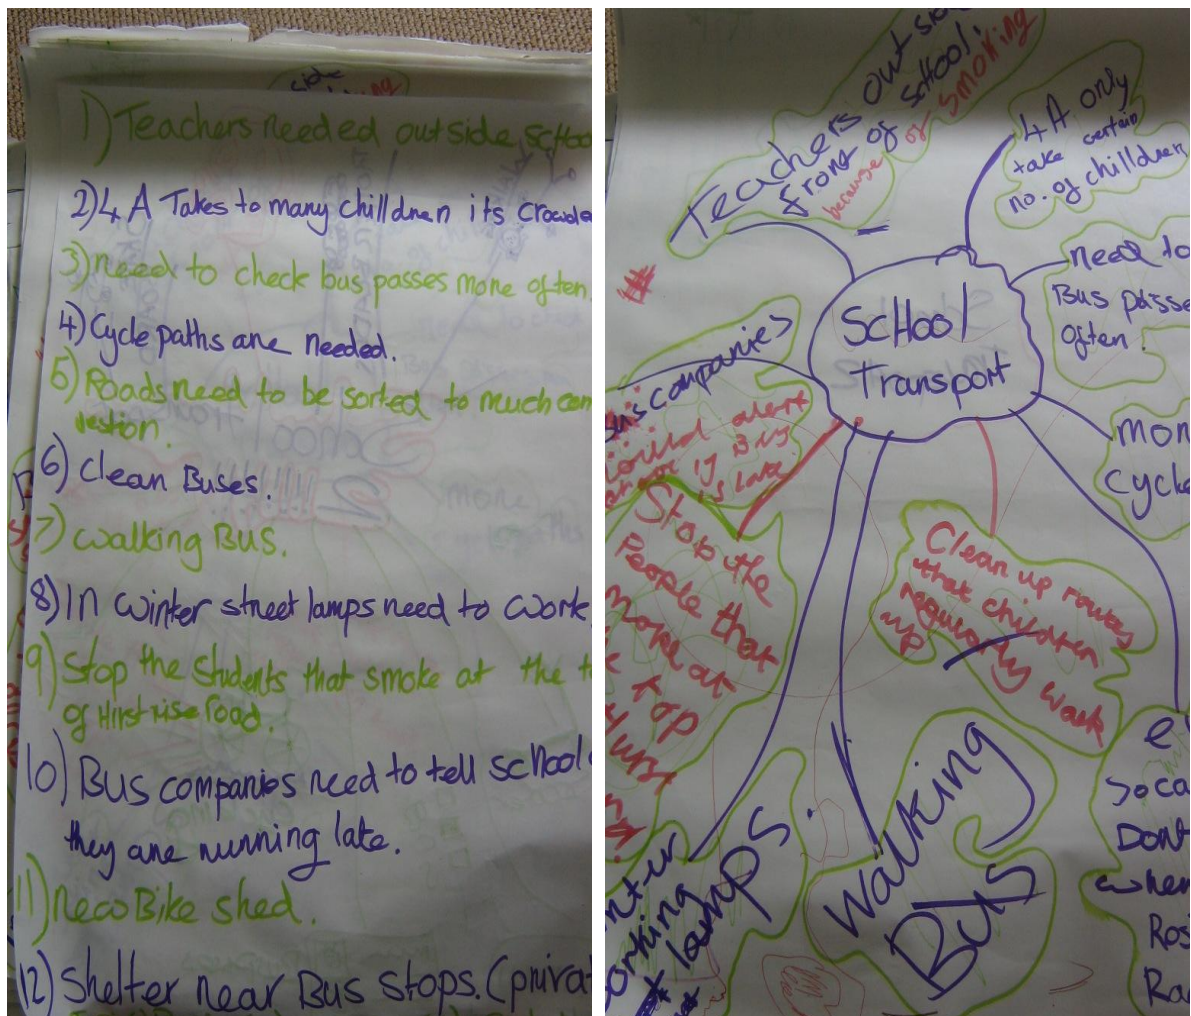 1) Teachers needed outside Schoo
2) 4A Takes to many chilldren its crowde
3) need to check bus passes more often.
4) Cycle paths are needed.
5) Roads need to be sorted to much con
vestion.
6) Clean Buses.
7) walking Bus.
8) In winter street lamps need to work
9) Stop the Students that smoke at the t
of Hirst rise road.
10) Bus companies need to tell school
they are running late.
11) New Bike shed.
12) Shelter near Bus stops. (privat
Teachers out side
front of School!
because of smoking
4A only
take certain
no. of chilldren
need to
Bus passe
often.
School
Transport
Bus companies
could alert
if Bus
is late
mor
Cycle
Stop the
People that
smoke at
top
Hirst
Clean up routes
that children
regularly walk
up
Walking
Bus
nter
orking
lamps.
Soca
Dont
when
Ros
Ra